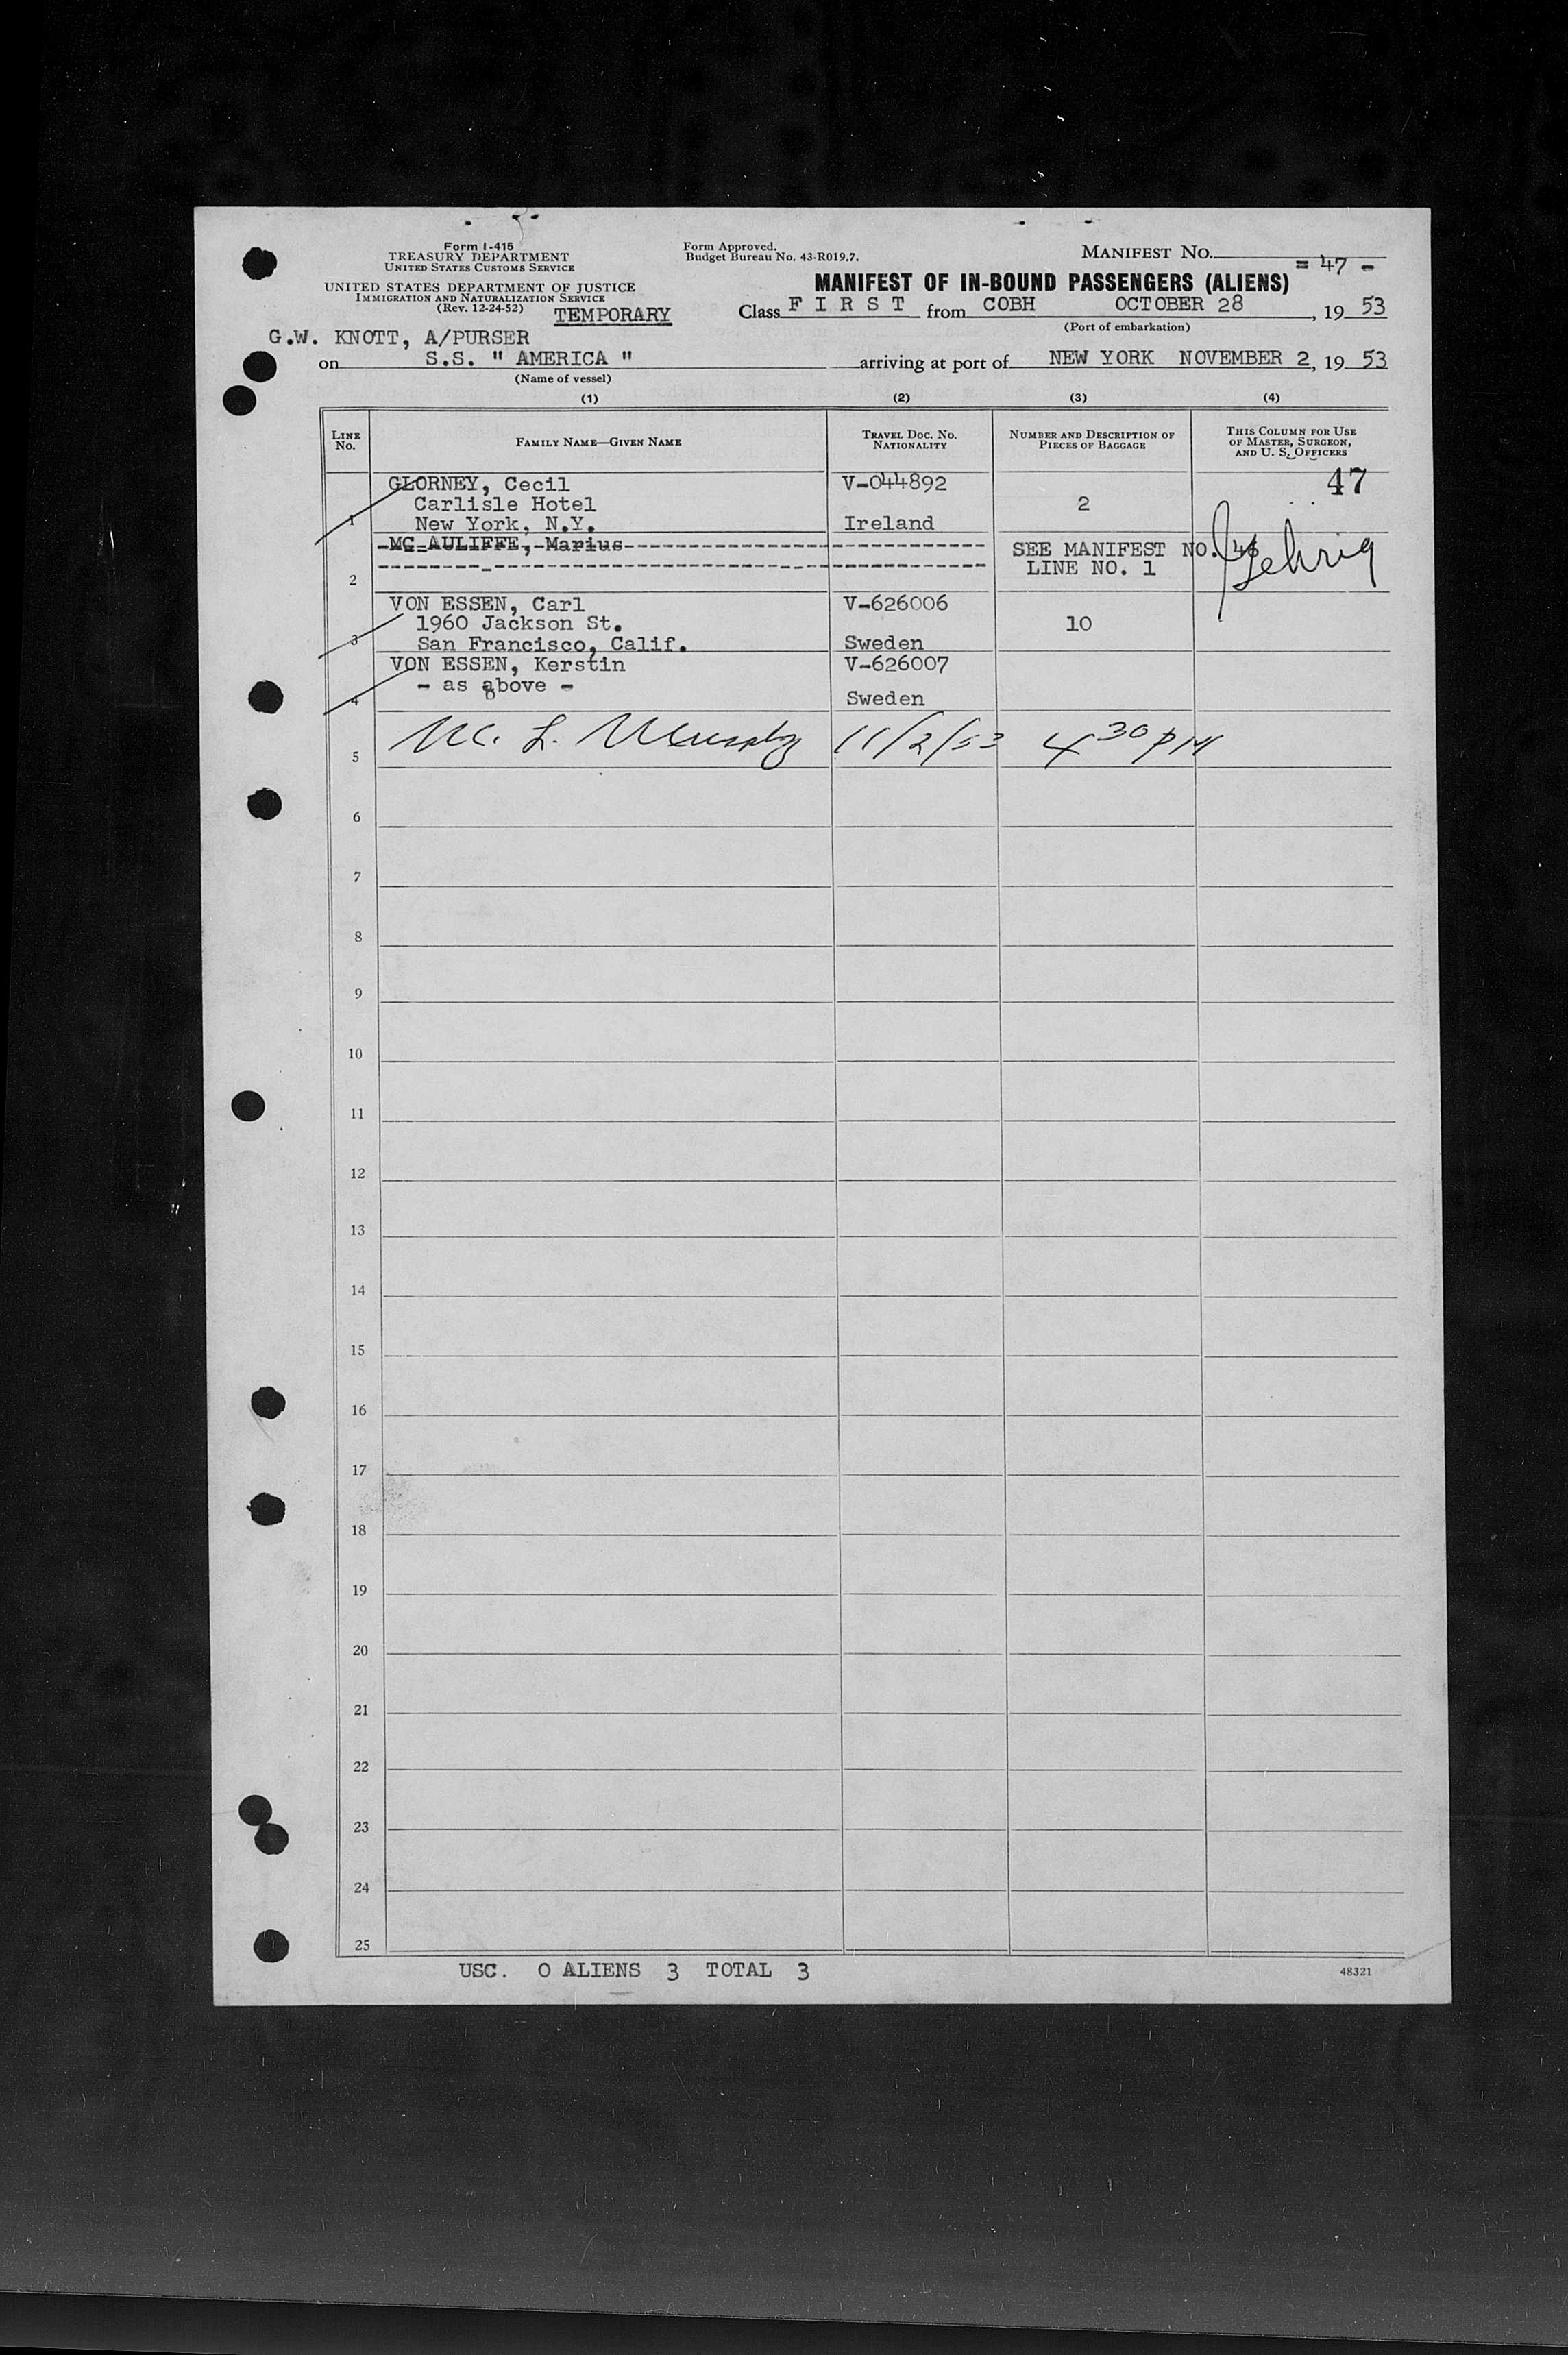 Form I-415
TREASURY DEPARTMENT
UNITED STATES CUSTOMS SERVICE
UNITED STATES DEPARTMENT OF JUSTICE
IMMIGRATION AND NATURALIZATION SERVICE
(Rev. 12-24-52)
TEMPORARY
Form Approved.
Budget Bureau No. 43-R019.7.
MANIFEST No. = 47 -
MANIFEST OF IN-BOUND PASSENGERS (ALIENS)
Class F I R S T from COBH OCTOBER 28, 19 53
(Port of embarkation)
G.W. KNOTT, A/PURSER
on S.S. " AMERICA " arriving at port of NEW YORK NOVEMBER 2, 19 53
(Name of vessel)
(1) (2) (3) (4)
LINE No. FAMILY NAME—GIVEN NAME TRAVEL DOC. NO. NATIONALITY NUMBER AND DESCRIPTION OF PIECES OF BAGGAGE THIS COLUMN FOR USE OF MASTER, SURGEON, AND U. S. OFFICERS
47
GLORNEY, Cecil V-044892
Carlisle Hotel 2
1 New York, N.Y. Ireland
MC AULIFFE, Marius SEE MANIFEST NO.
LINE NO. 1
Gehrig
2
VON ESSEN, Carl V-626006
1960 Jackson St. 10
3 San Francisco, Calif. Sweden
VON ESSEN, Kerstin V-626007
- as above -
4 Sweden
5 L. 11/2/53 4 30 PM
6
7
8
9
10
11
12
13
14
15
16
17
18
19
20
21
22
23
24
25
USC. 0 ALIENS 3 TOTAL 3
48321